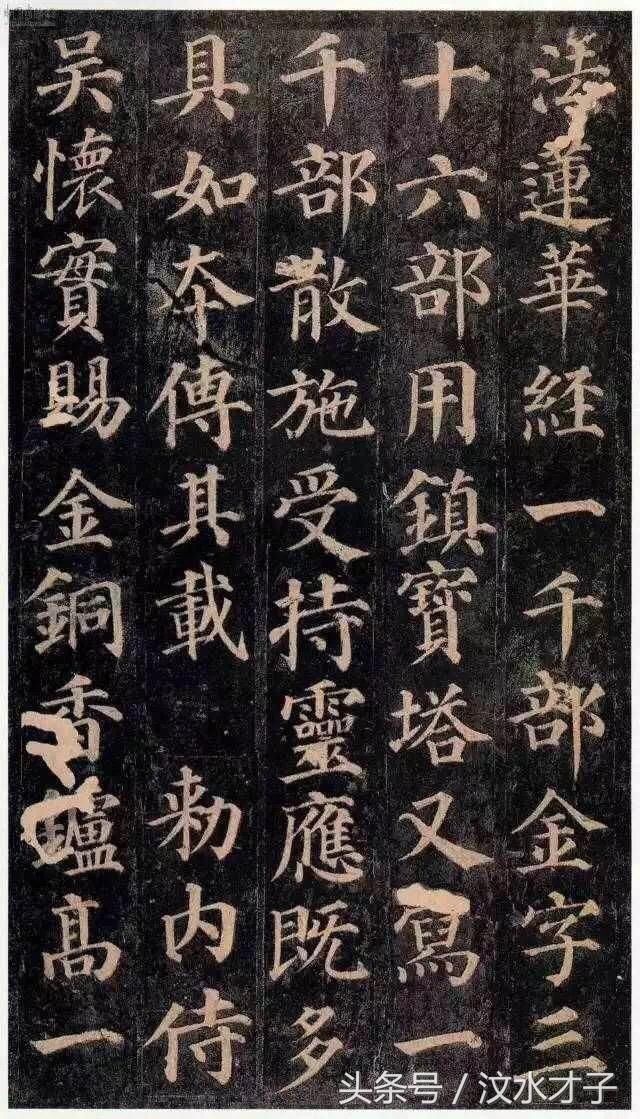 法蓮華經一千部金字三
十六部用鎮寶塔又寫一
千部散施受持靈應既多
具如本傳其載　敕內侍
吳懷實賜金銅香鑪高一
头条号 / 汶水才子